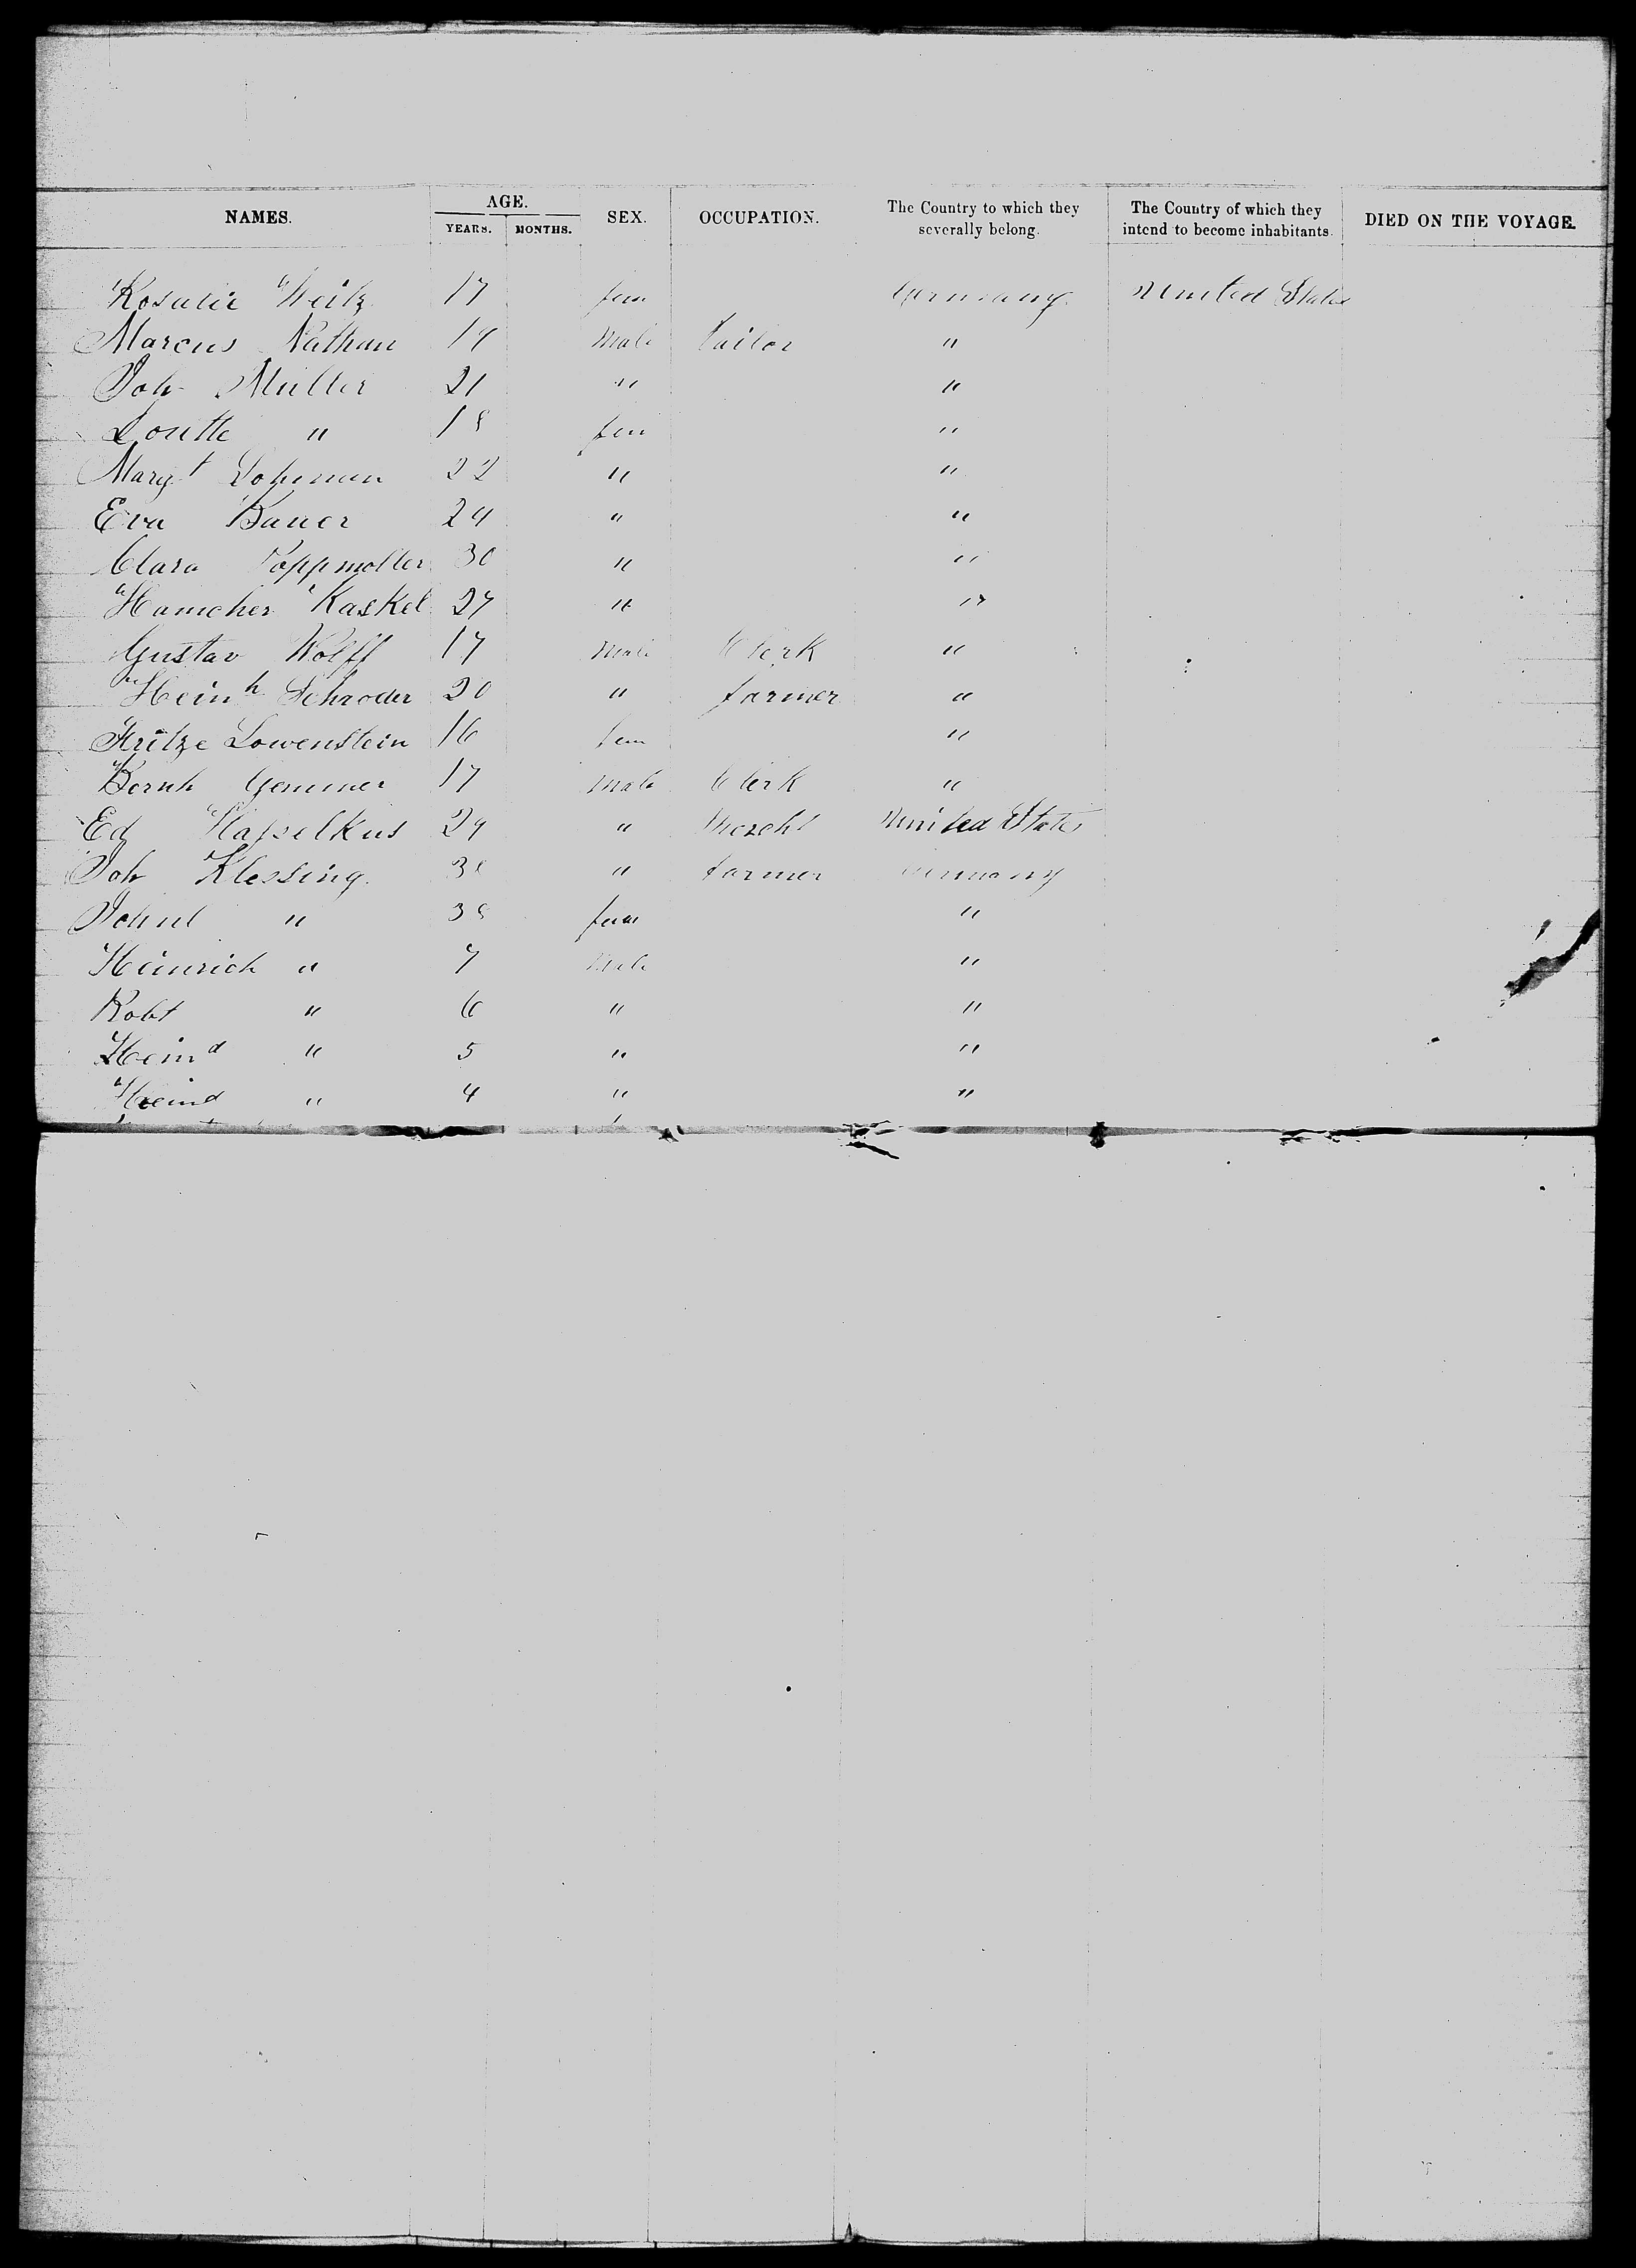 NAMES. AGE. YEARS. MONTHS. SEX. OCCUPATION. The Country to which they severally belong. The Country of which they intend to become inhabitants. DIED ON THE VOYAGE.
Rosalie Weitz 17 fem Germany United States
Marcus Nathan 19 Male Tailor "
Joh Müller 21 " "
" 18 fem "
Margt Lohman 22 " "
Eva Bauer 24 " "
Clara Poppmoller 30 " "
Kaskel 27 " "
Gustav Wolff 17 Male Clerk "
Heinh Schroder 20 " farmer "
Fritze Lowenstein 16 fem "
Bernh Gemmer 17 Male Clerk "
Ed Haselkus 29 " Mercht United States
Joh Klessing 38 " farmer Germany
" 38 fem "
Heinrich " 7 Male "
Robt " 6 " "
Heind " 5 " "
" 4 " "